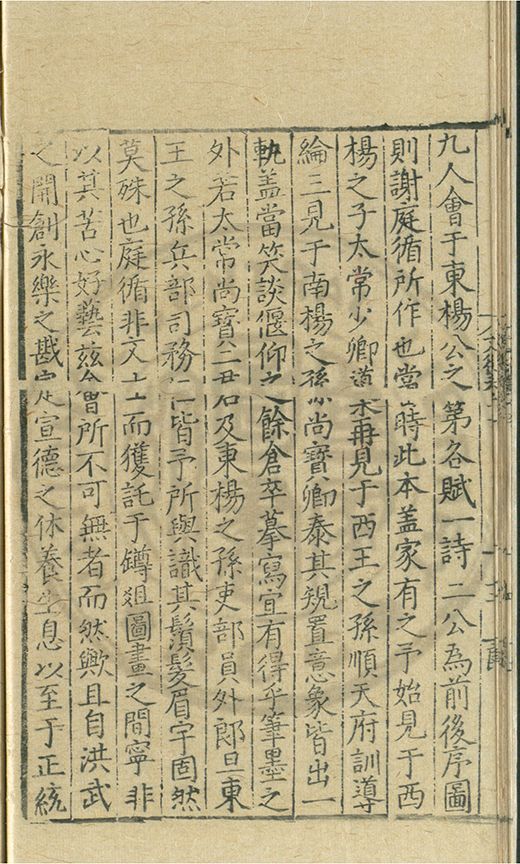 九人會于東楊公之第各賦一詩二公為前後序圖
則謝庭循所作也當時此本盖家有之予始見于西
楊之子太常少卿導再見于西王之孫順天府訓導
綸三見于南楊之孫尚寶卿泰其規置意象皆出一
軌盖當笑談偃仰之餘倉卒摹寫宜有得乎筆墨之
外若太常尚寶二君及東楊之孫吏部員外郎旦東
王之孫兵部司務仁皆予所與識其鬢髮眉宇固然
莫殊也庭循非文士而獲託于罇俎圖畫之間寧非
以其苦心好藝茲會所不可無者而然歟且自洪武
之開創永樂之戡定宣德之休養生息以至于正統